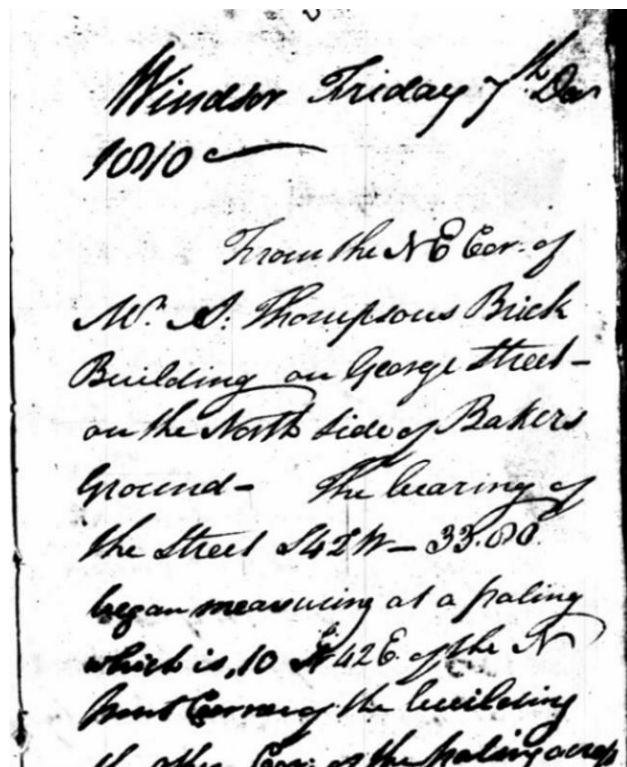 Windsor Friday 7th Dec
1810
From the N E Cor. of
Mr. A. Thompsons Brick
Building on George Street -
on the North side of Bakers
Ground - The bearing of
the Street S 42 W - 33.80.
began measuring at a paling
which is, 10 N 42 E of the N
front Corner of the building
the other Cor. of the paling across